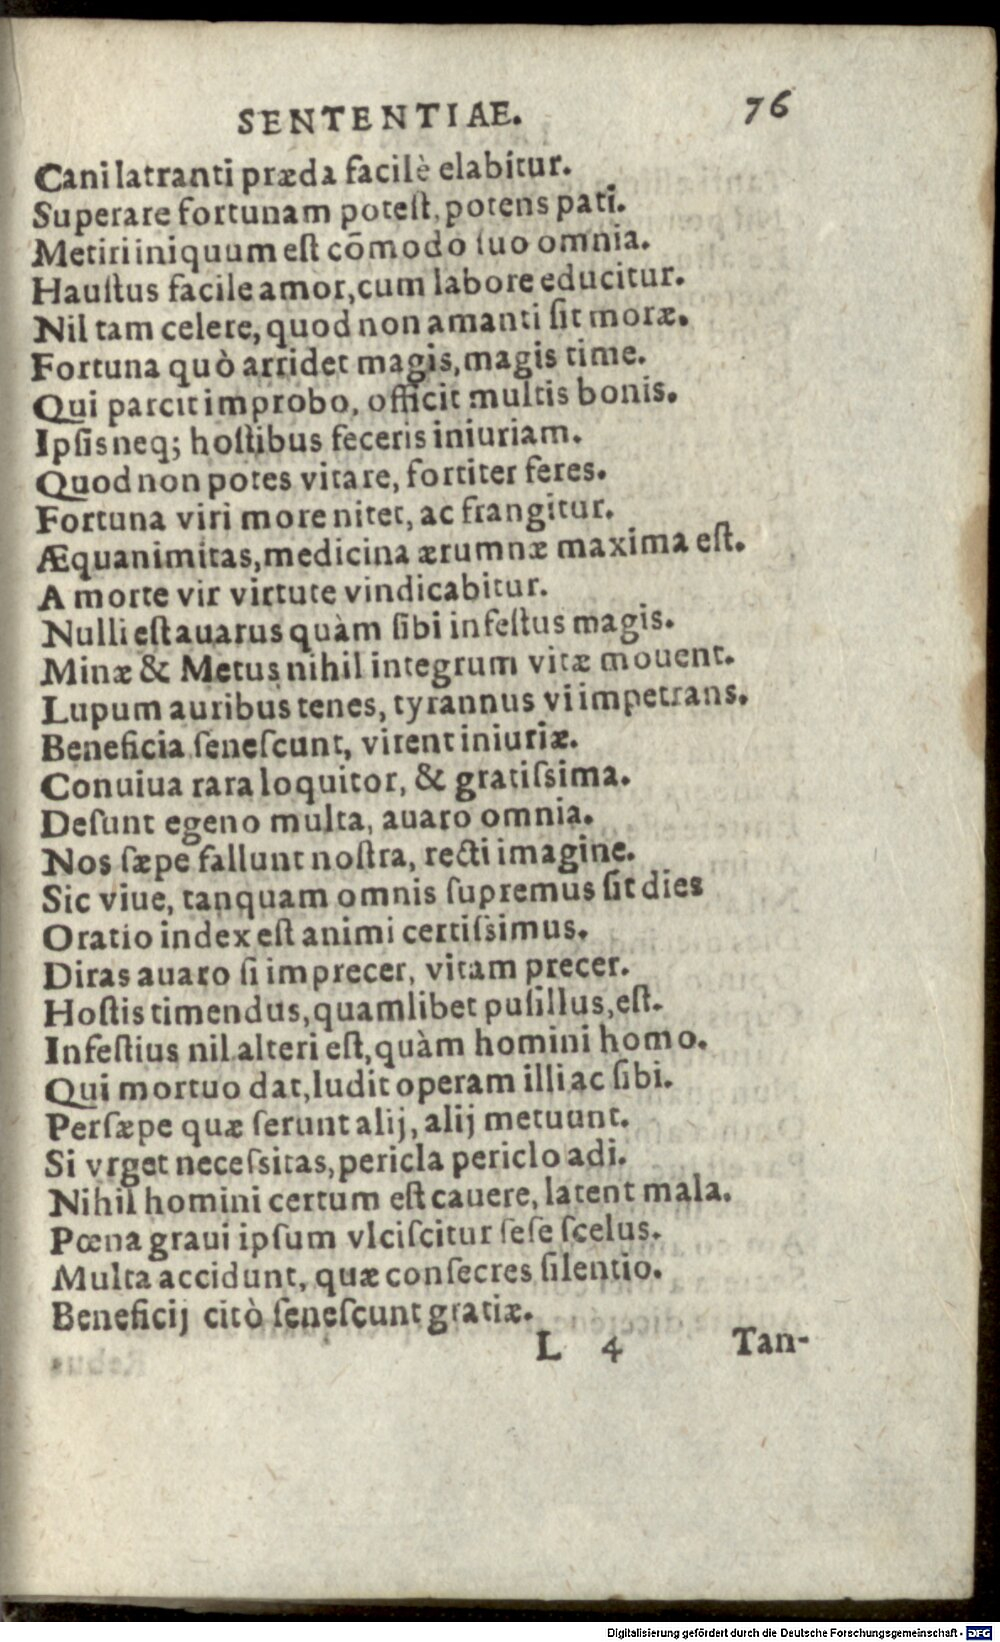 SENTENTIAE. 76
Cani latranti præda facilè elabitur.
Superare fortunam potest, potens pati.
Metiri iniquum est cõmodo suo omnia.
Haustus facile amor, cum labore educitur.
Nil tam celere, quod non amanti sit moræ.
Fortuna quò arridet magis, magis time.
Qui parcit improbo, officit multis bonis.
Ipsis neq; hostibus feceris iniuriam.
Quod non potes vitare, fortiter feres.
Fortuna viri more nitet, ac frangitur.
Æquanimitas, medicina ærumnæ maxima est.
A morte vir virtute vindicabitur.
Nulli est auarus quàm sibi infestus magis.
Minæ & Metus nihil integrum vitæ mouent.
Lupum auribus tenes, tyrannus vi impetrans.
Beneficia senescunt, virent iniuriæ.
Conuiua rara loquitor, & gratissima.
Desunt egeno multa, avaro omnia.
Nos sæpe fallunt nostra, recti imagine.
Sic viue, tanquam omnis supremus sit dies
Oratio index est animi certissimus.
Diras avaro si imprecer, vitam precer.
Hostis timendus, quamlibet pusillus, est.
Infestius nil alteri est, quàm homini homo.
Qui mortuo dat, ludit operam illi ac sibi.
Persæpe quæ serunt alij, alij metuunt.
Si vrget necessitas, pericla periclo adi.
Nihil homini certum est cauere, latent mala.
Pœna graui ipsum vlciscitur sese scelus.
Multa accidunt, quæ consecres silentio.
Beneficij citò senescunt gratiæ.
L 4 Tan-
Digitalisierung gefördert durch die Deutsche Forschungsgemeinschaft - DFG